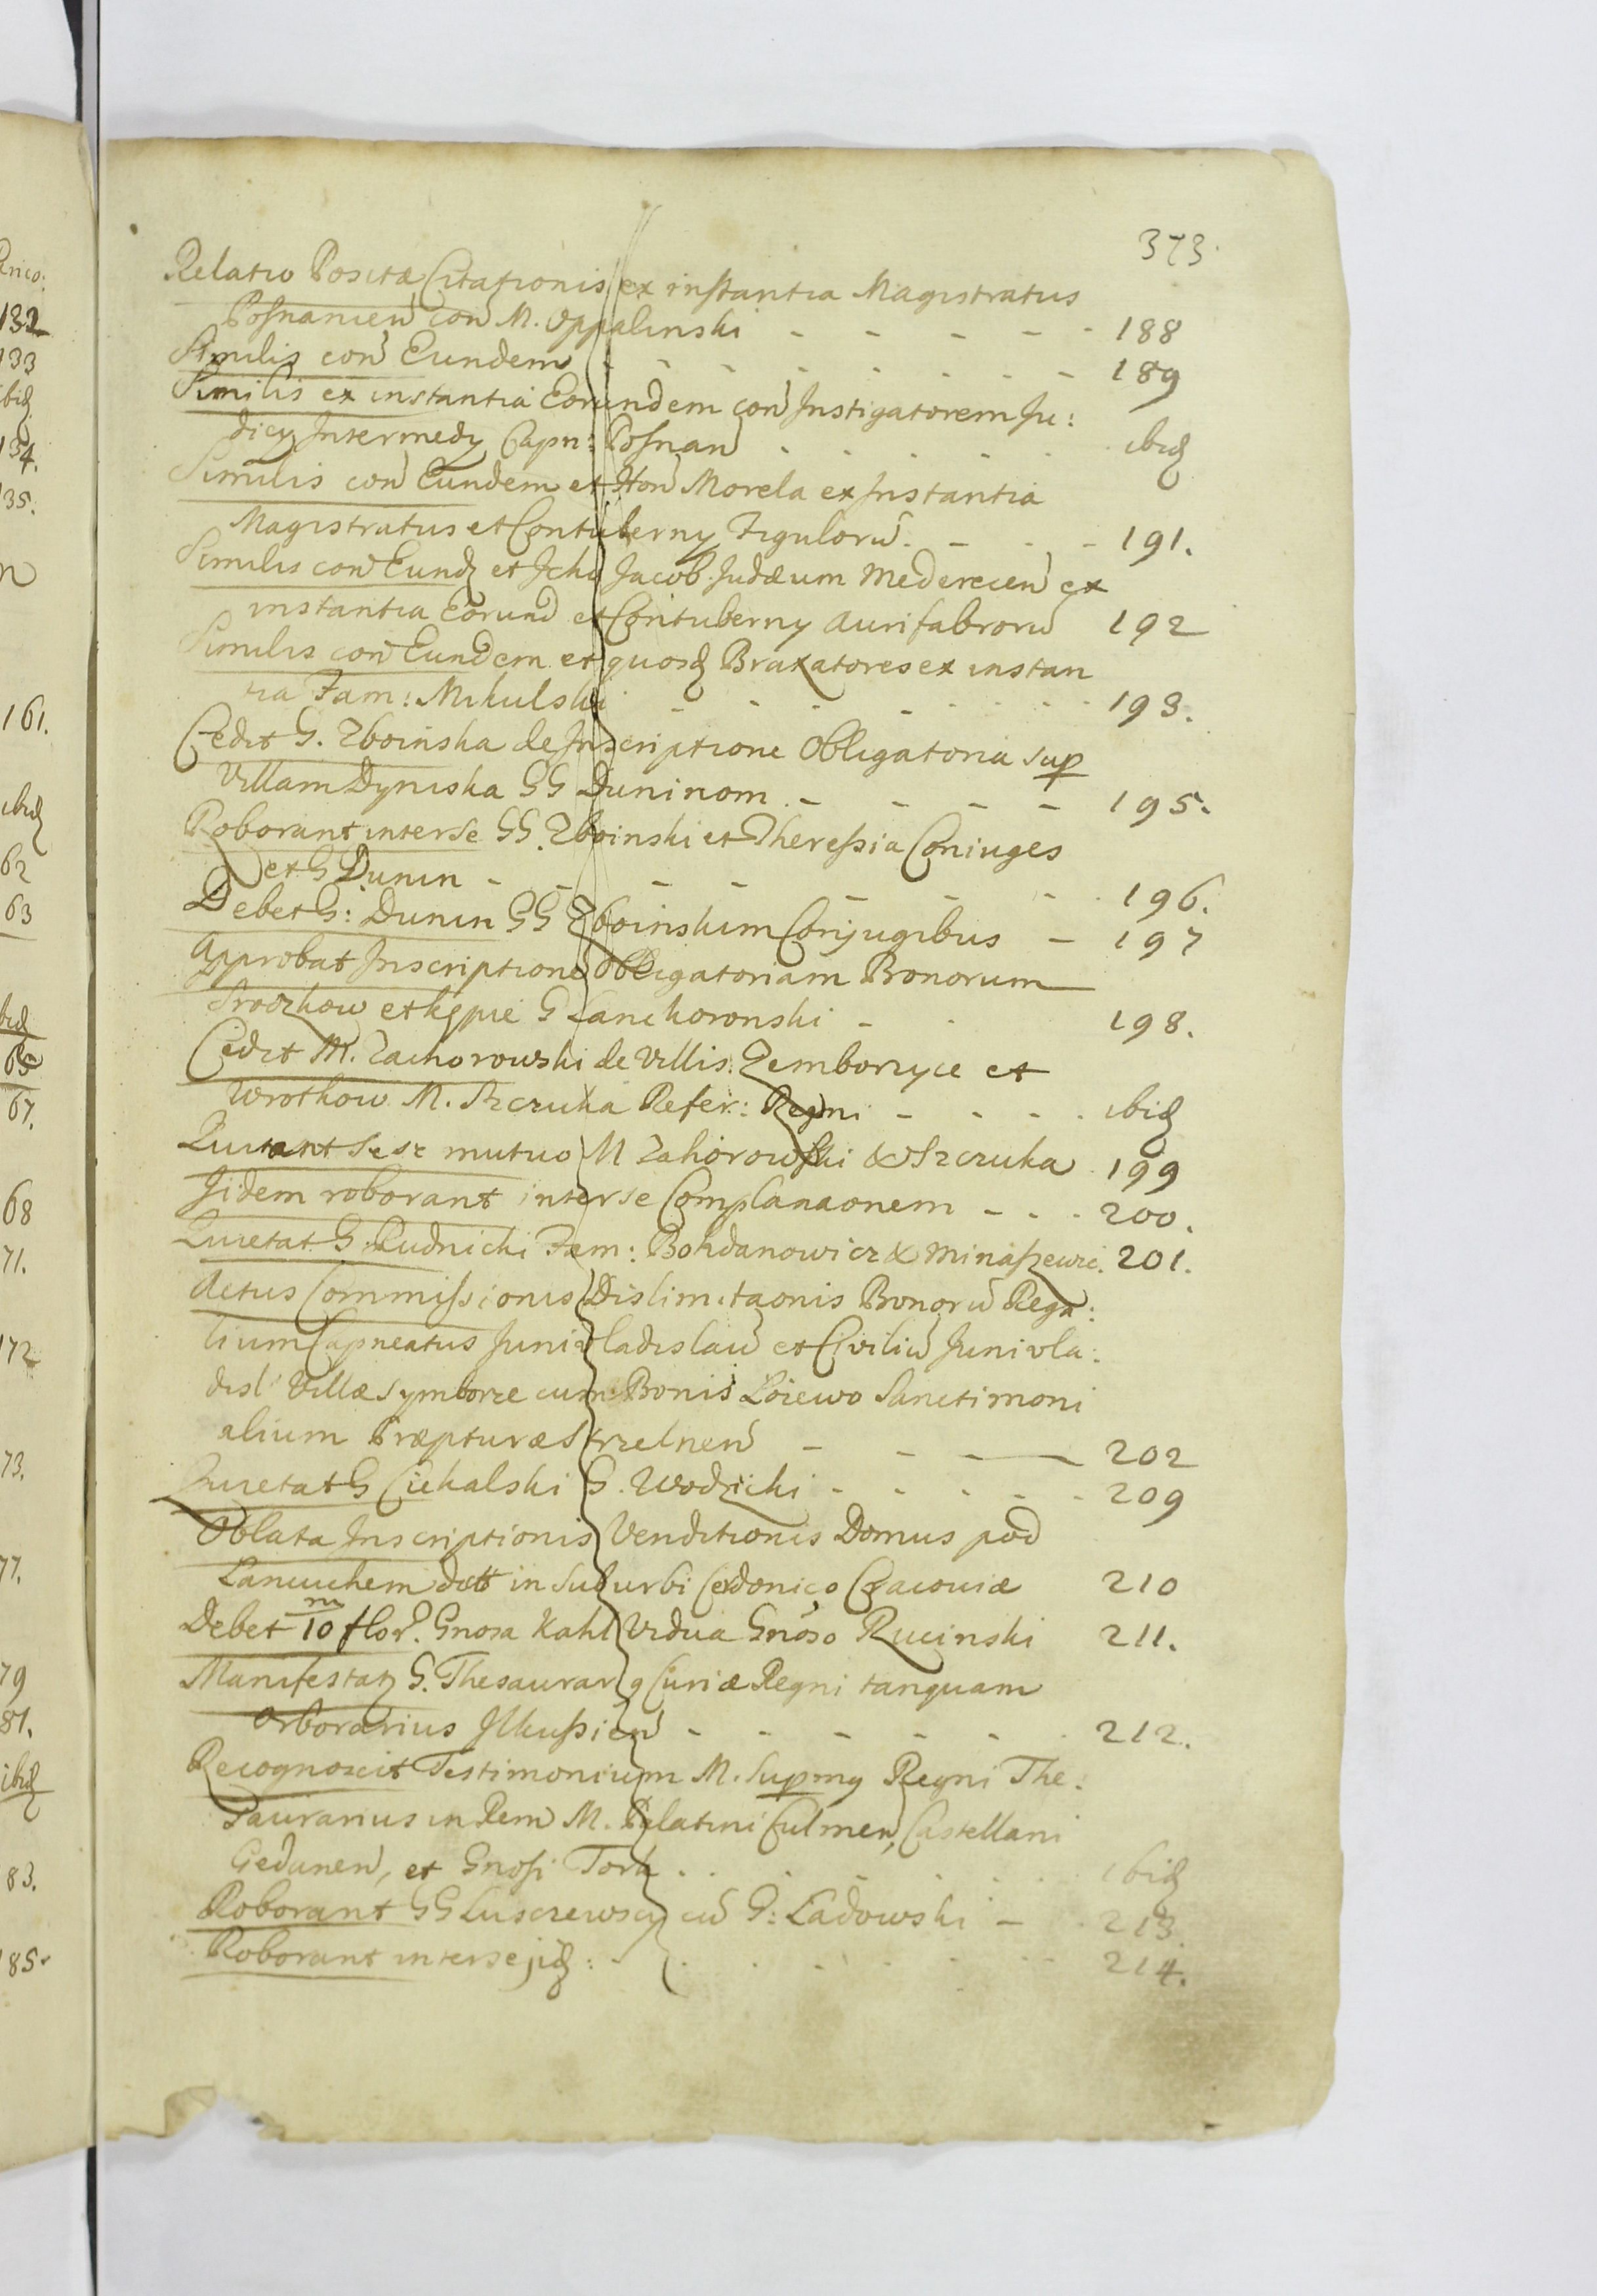 373.
Relatio Positæ Citationis ex instantia Magistratus
Posnanien con M. Oppalinski - - - - - 188
Similis con Eundem - - - - - - - - 189
Similis ex instantia Eorundem con Instigatorem Ju:
dicy Intermedy Capn: Posnan - - - - - ibid
Similis con Eundem et Hon Morela ex Instantia
Magistratus et Contuberny Figuloru. - - - 191.
Similis con Eund et Icho Jacob Judæum Mederecen ex
instantia Eorund et Contuberny Aurifabroru 192
Similis con Eundem et quosd Braxatores ex instan
tia Fam: Mikulski - - - - - - 193.
Cedit G. Zboinska de Inscriptione Obligatoria sup
Villam Dyniska GG Duninom. - - - - 195.
Roborant inter se GG. Zboinski et Theressia Coniuges
et G Dunin - - - - - - - 196.
Debet G: Dunin GG Zboinskim Conjugibus - 197
Approbat Inscriptione Obligatoriam Bonorum
Sroczkow et Kępie G Lanckoronski - - 198.
Cedit M. Zachorowski de Villis Zemborzyce et
Wrotkow M. Szczuka Refer: Regni - - - - ibid
Quitant sese mutuo M Zahorowski & Szczuka 199
Iidem roborant inter se Complanaonem - - - 200.
Quietat G. Rudnicki Fam: Bohdanowicz & Minaszewic. 201.
Actus Commissionis Dislimitaonis Bonoru Rega:
lium Capneatus Junivladislau et Civiliu Junivla:
disl Villæ Symborze cum Bonis Łoiewo Sanctimoni
alium Præpturæ Strzelnen - - - 202
Quietat G Ciekalski G. Wodzicki - - - - - 209
Oblata Inscriptionis Venditionis Domus pod
Lancuchem dctt in Suburbi Cerdonico Cracoviæ 210
Debet 10 m flor. Gnosa Kahl Vidua Gnoso Rucinski 211.
Manifestat G. Thesaurar Curiæ Regni tanquam
Orborarius Ilkussien - - - - - - 212.
Recognoscit Testimonium M. Supmy Regni The:
saurarius in Rem M. Palatini Culmen, Castellani
Gedanen, et Gnosi Tork. - - - - - ibid
Roborant GG Lusczewscy cu G: Ładowski - - 213.
Roborant inter se iid: - - - - - 214.